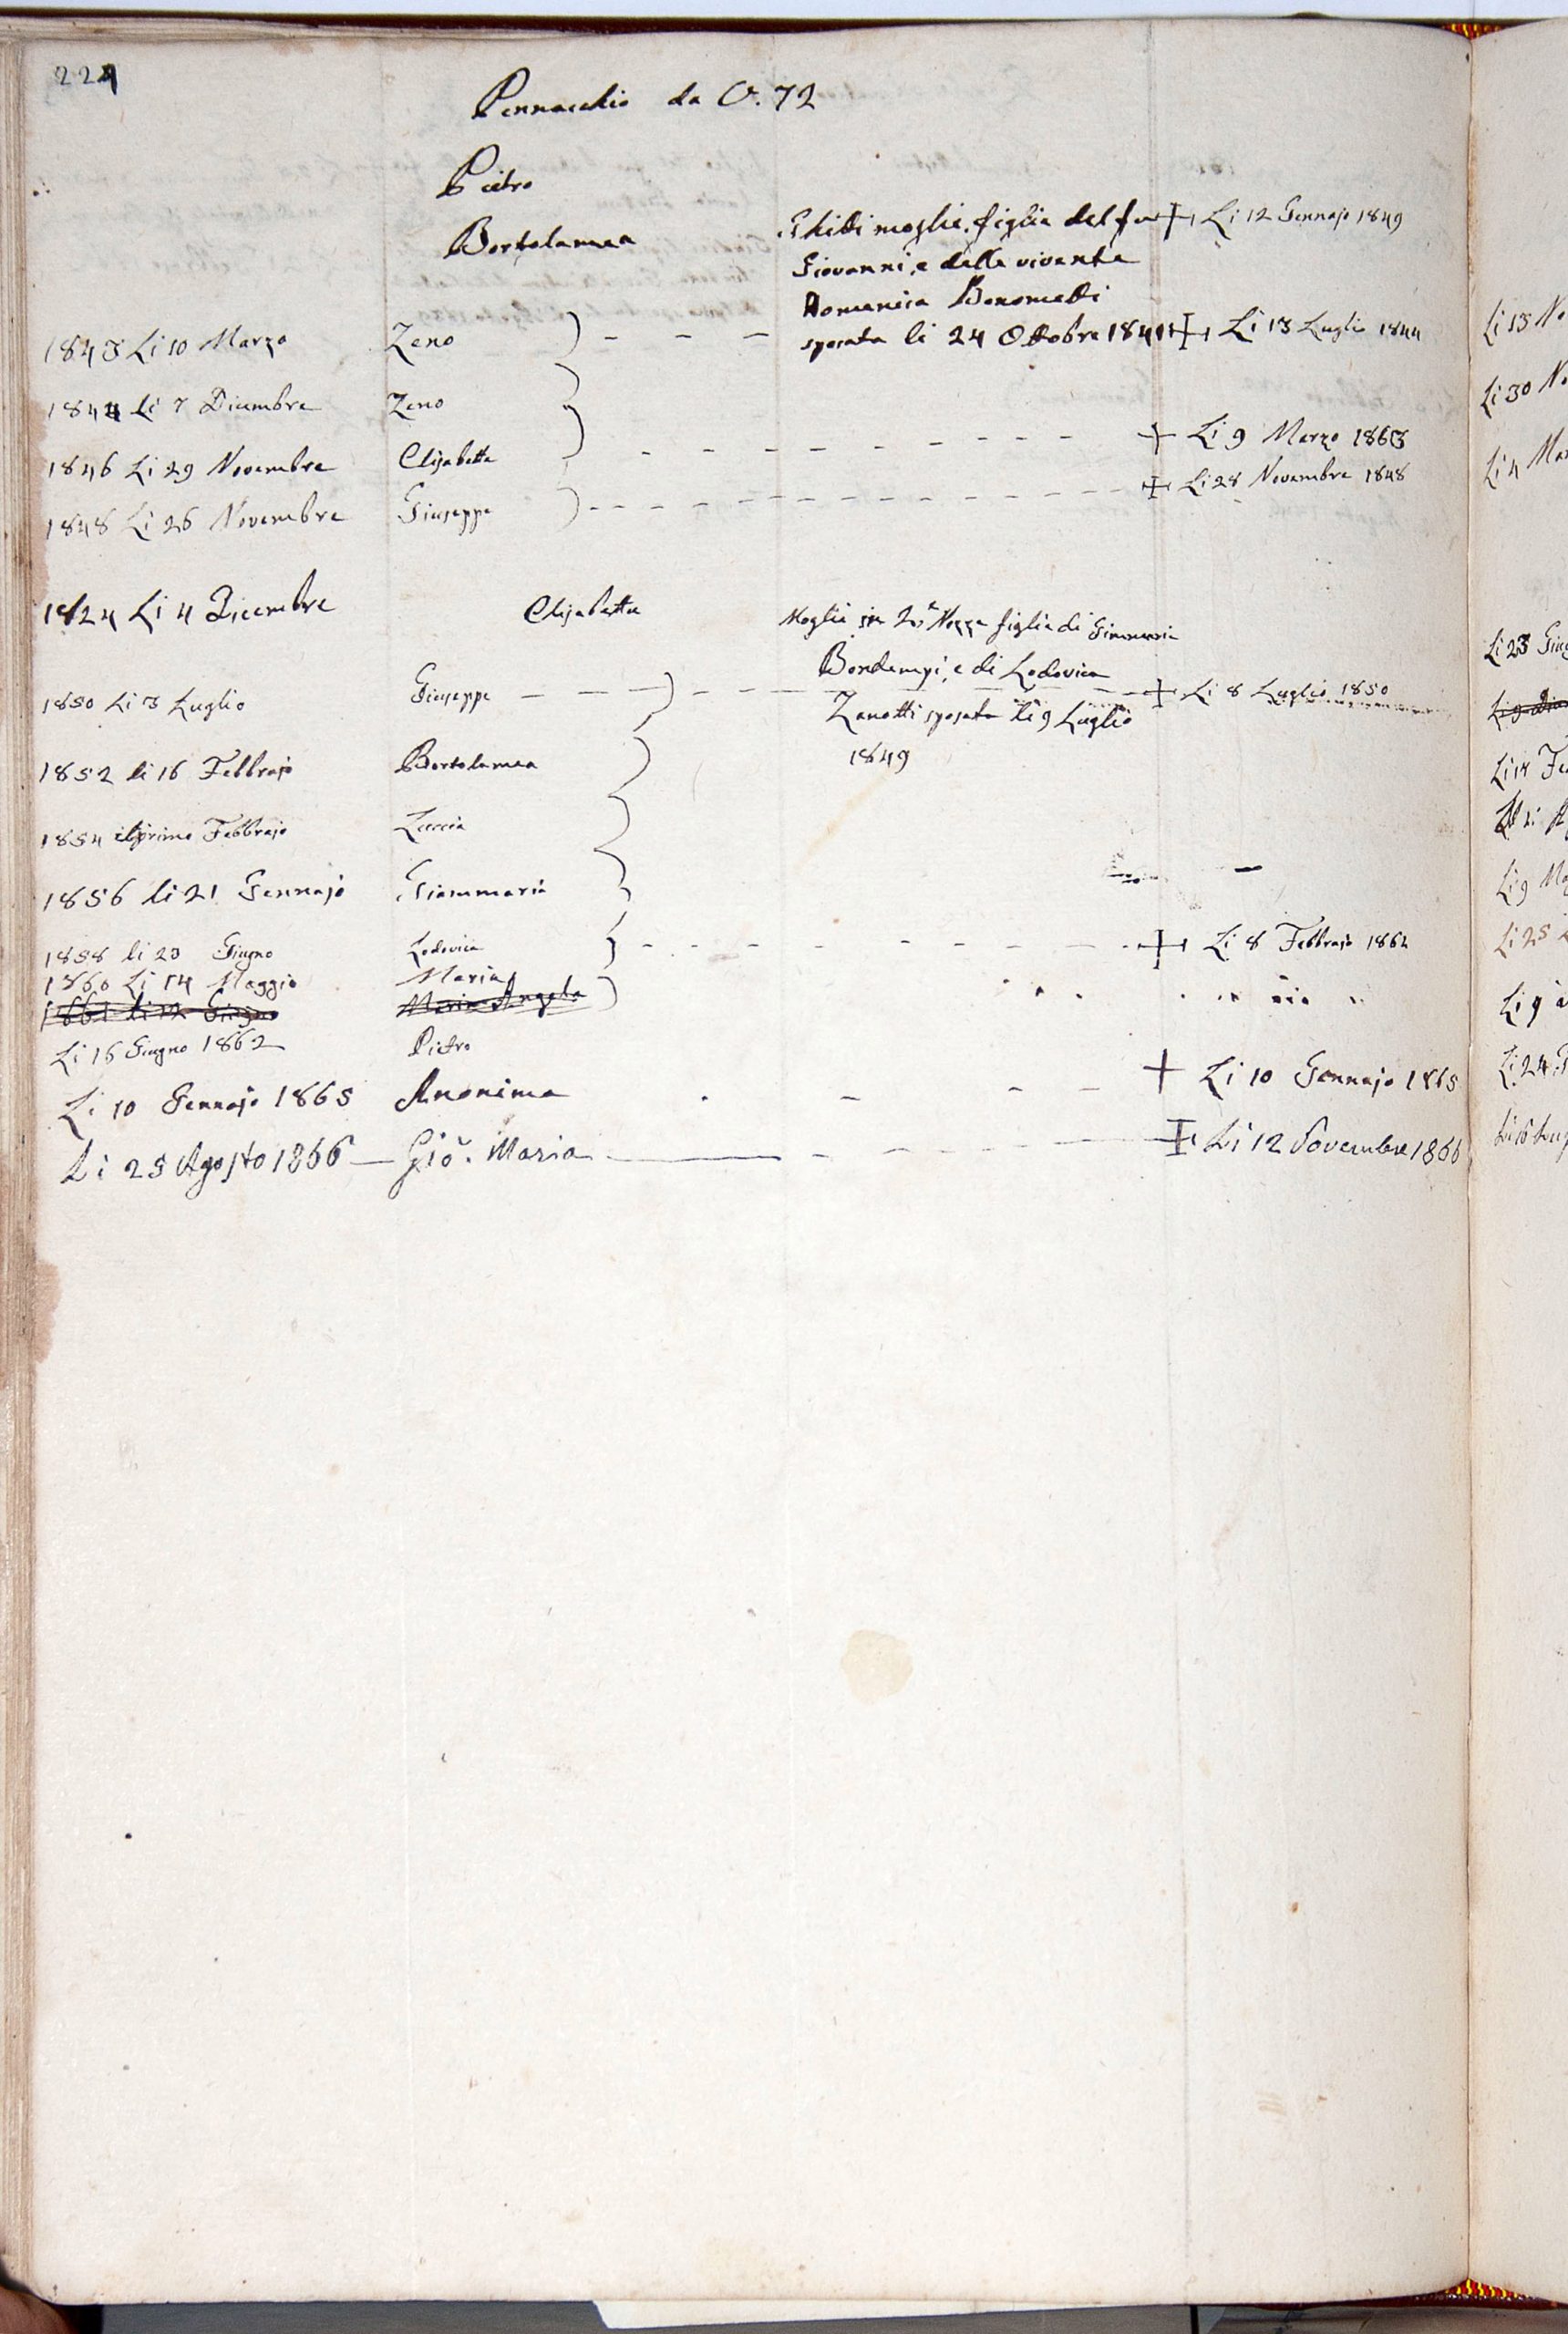 224
Pennacchio da C. 72
Pietro
Bortolamea Ghitti moglie figlia del fu + Li 12 Gennajo 1849
Giovanni, e della vivente
Domenica Bonometti
sposata li 24 Ottobre 1841
1843 Li 10 Marzo Zeno ) - - - + Li 13 Luglio 1844
1844 li 7 Dicembre Zeno )
1846 Li 29 Novembre Elisabetta ) - - - + Li 9 Marzo 1863
1848 Li 26 Novembre Giuseppe ) - - - + Li 28 Novembre 1848
1824 Li 4 Dicembre Elisabetta Moglie in 2.e Nozze figlia di Giammaria
Bordempi, e di Lodovica
Zanotti sposata li 9 Luglio
1849
1850 Li 3 Luglio Giuseppe - - - ) - - - + Li 8 Luglio 1850
1852 li 16 Febbrajo Bortolamea
1854 il primo Febbrajo Luccia
1856 li 21 Gennajo Giammaria
1858 li 23 Giugno Lodovica } - - - + Li 8 Febbrajo 1862
1860 Li 14 Maggio Maria
Maria Angela )
Li 16 Giugno 1862 Pietro
Li 10 Gennajo 1865 Anonima - - - + Li 10 Gennajo 1865
Li 25 Agosto 1866 — Gio. Maria - - - + Li 12 Novembre 1866
Li 13 No
Li 30 No
Li 4 Mar
Li 23 Giug
Li 9
Li 25
Li 9
Li 24